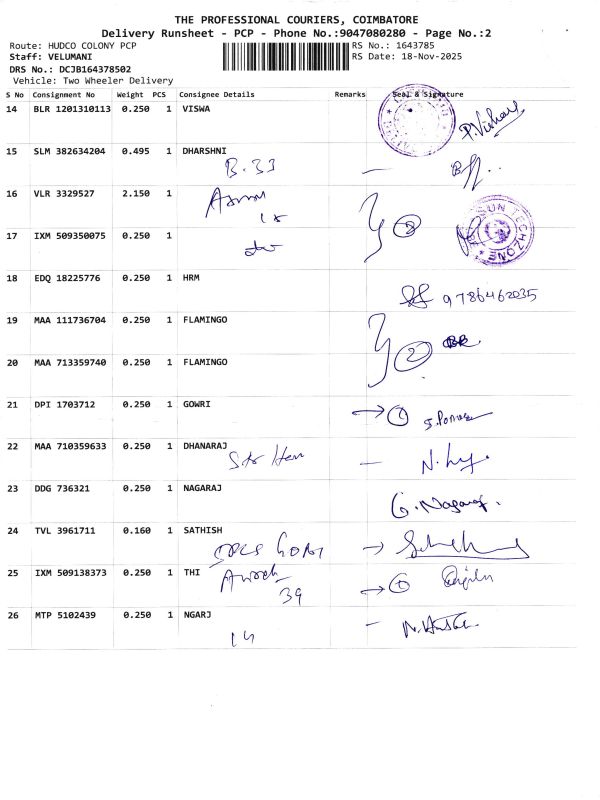 THE PROFESSIONAL COURIERS, COIMBATORE
Delivery Runsheet - PCP - Phone No.:9047080280 - Page No.:2
Route: HUDCO COLONY PCP RS No.: 1643785
Staff: VELUMANI RS Date: 18-Nov-2025
DRS No.: DCJB164378502
Vehicle: Two Wheeler Delivery
S No Consignment No Weight PCS Consignee Details Remarks Seal & Signature
14 BLR 1201310113 0.250 1 VISWA
15 SLM 382634204 0.495 1 DHARSHNI
B.33
16 VLR 3329527 2.150 1
2
SUN TECHZONE
17 IXM 509350075 0.250 1
18 EDQ 18225776 0.250 1 HRM
9786462035
19 MAA 111736704 0.250 1 FLAMINGO
2
20 MAA 713359740 0.250 1 FLAMINGO
21 DPI 1703712 0.250 1 GOWRI
22 MAA 710359633 0.250 1 DHANARAJ
23 DDG 736321 0.250 1 NAGARAJ
G. Nagaraj.
24 TVL 3961711 0.160 1 SATHISH
25 IXM 509138373 0.250 1 THI
39
26 MTP 5102439 0.250 1 NGARJ
14